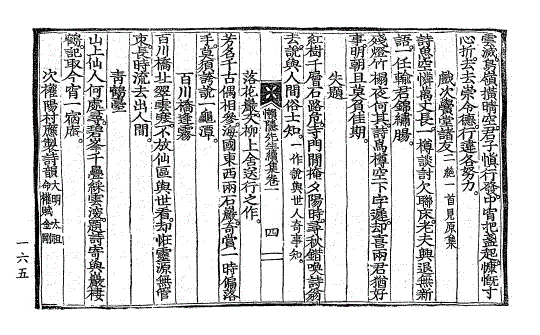 雲滅鳥嶺摸晴空君子愼行發中宵把盞起慷慨寸
心折去去崇令德行違各努力
戲次鷺堂諸友二絶一首見原集
詩魚空憐萬丈長一樽談討欠聯床老夫興退無新
語一任輸君錦繡腸
殘燈竹榻夜何其詩萬樽空下字遲却喜兩君猶好
事明朝且莫負佳期
失題
紅樹千層石路危寺門閒掩夕陽時尋秋錯喚詩翁
去說與人間俗士知一作說與世人奇事知
懶隱先生續集卷一
四
落花巖大柳上舍送行之作
芳名千古偶相參海國東西兩石巖奇賞一時偏落
手莫須誘說一龜潭
百川橋逢霧
百川橋址翠雲寒不放仙區與世看却恠靈源無管
束長時流去出人間
靑鶴臺
山上仙人何處尋碧峯千疊綵雲凌題詩寄與巖棲
鶴記取今宵一宿庵
次權陽村應製詩韻大明太祖命權賦金剛
一六五